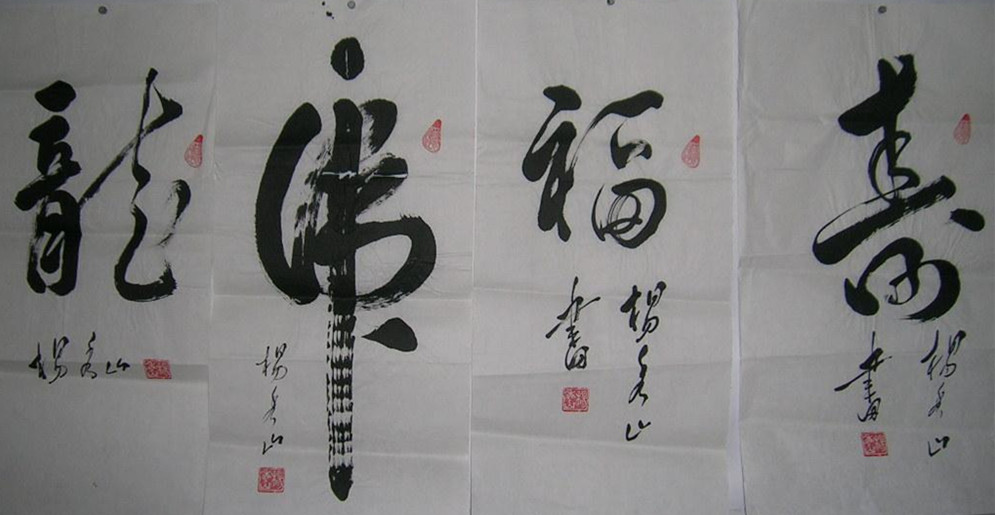 龍
楊秀山
虎
楊秀山
福
楊秀山
書
寿
楊秀山
書